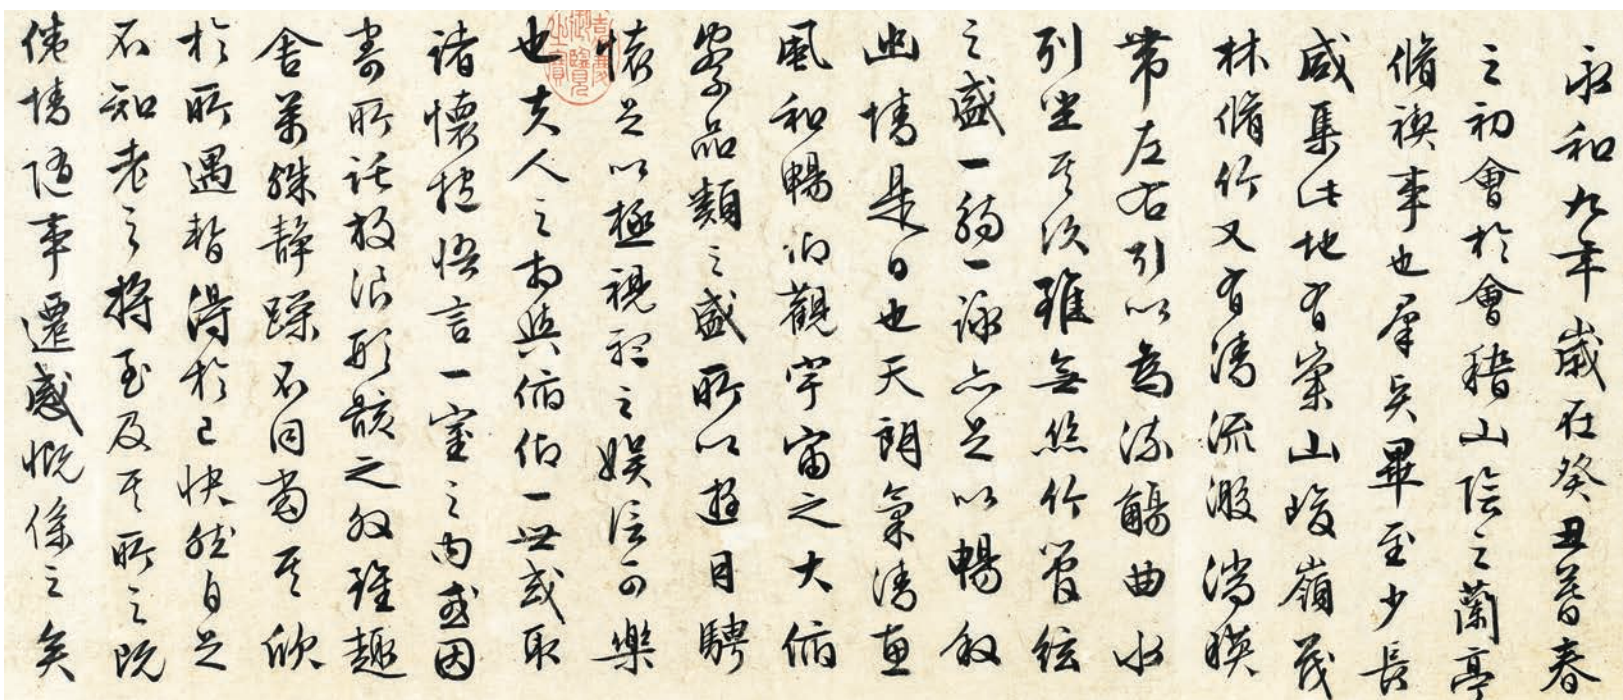 永和九年歲在癸丑暮春
之初會於會稽山陰之蘭亭
脩禊事也羣賢畢至少長
咸集此地有崇山峻嶺茂
林脩竹又有清流激湍暎
帶左右引以為流觴曲水
列坐其次雖無絲竹管絃
之盛一觴一詠亦足以暢敘
幽情是日也天朗氣清惠
風和暢仰觀宇宙之大俯
察品類之盛所以遊目騁
懷足以極視聽之娛信可樂
也夫人之相與俯仰一世或取
諸懷抱悟言一室之內或因
寄所託放浪形骸之外雖趣
舍萬殊靜躁不同當其欣
於所遇暫得於己快然自足
不知老之將至及其所之既
倦情隨事遷感慨係之矣
嘉慶御覽之寶